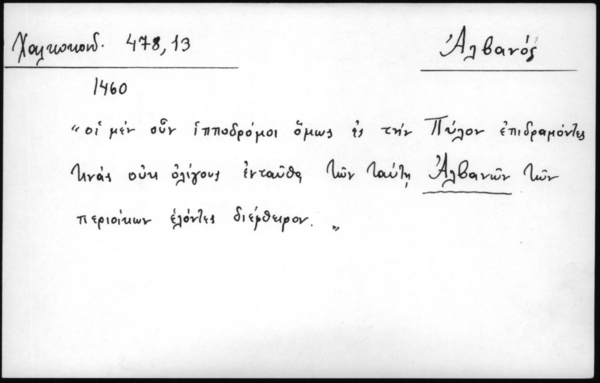 Χαλκοκονδ. 478,13
Ἀλβανός
1460
"οἱ μὲν οὖν ἱπποδρόμοι ὅμως ἐς τὴν Πύλον ἐπιδραμόντες
τινάς οὐκ ὀλίγους ἐνταῦθα τῶν ταύτῃ Ἀλβανῶν τῶν
περιοίκων ἑλόντες διέφθειρον."